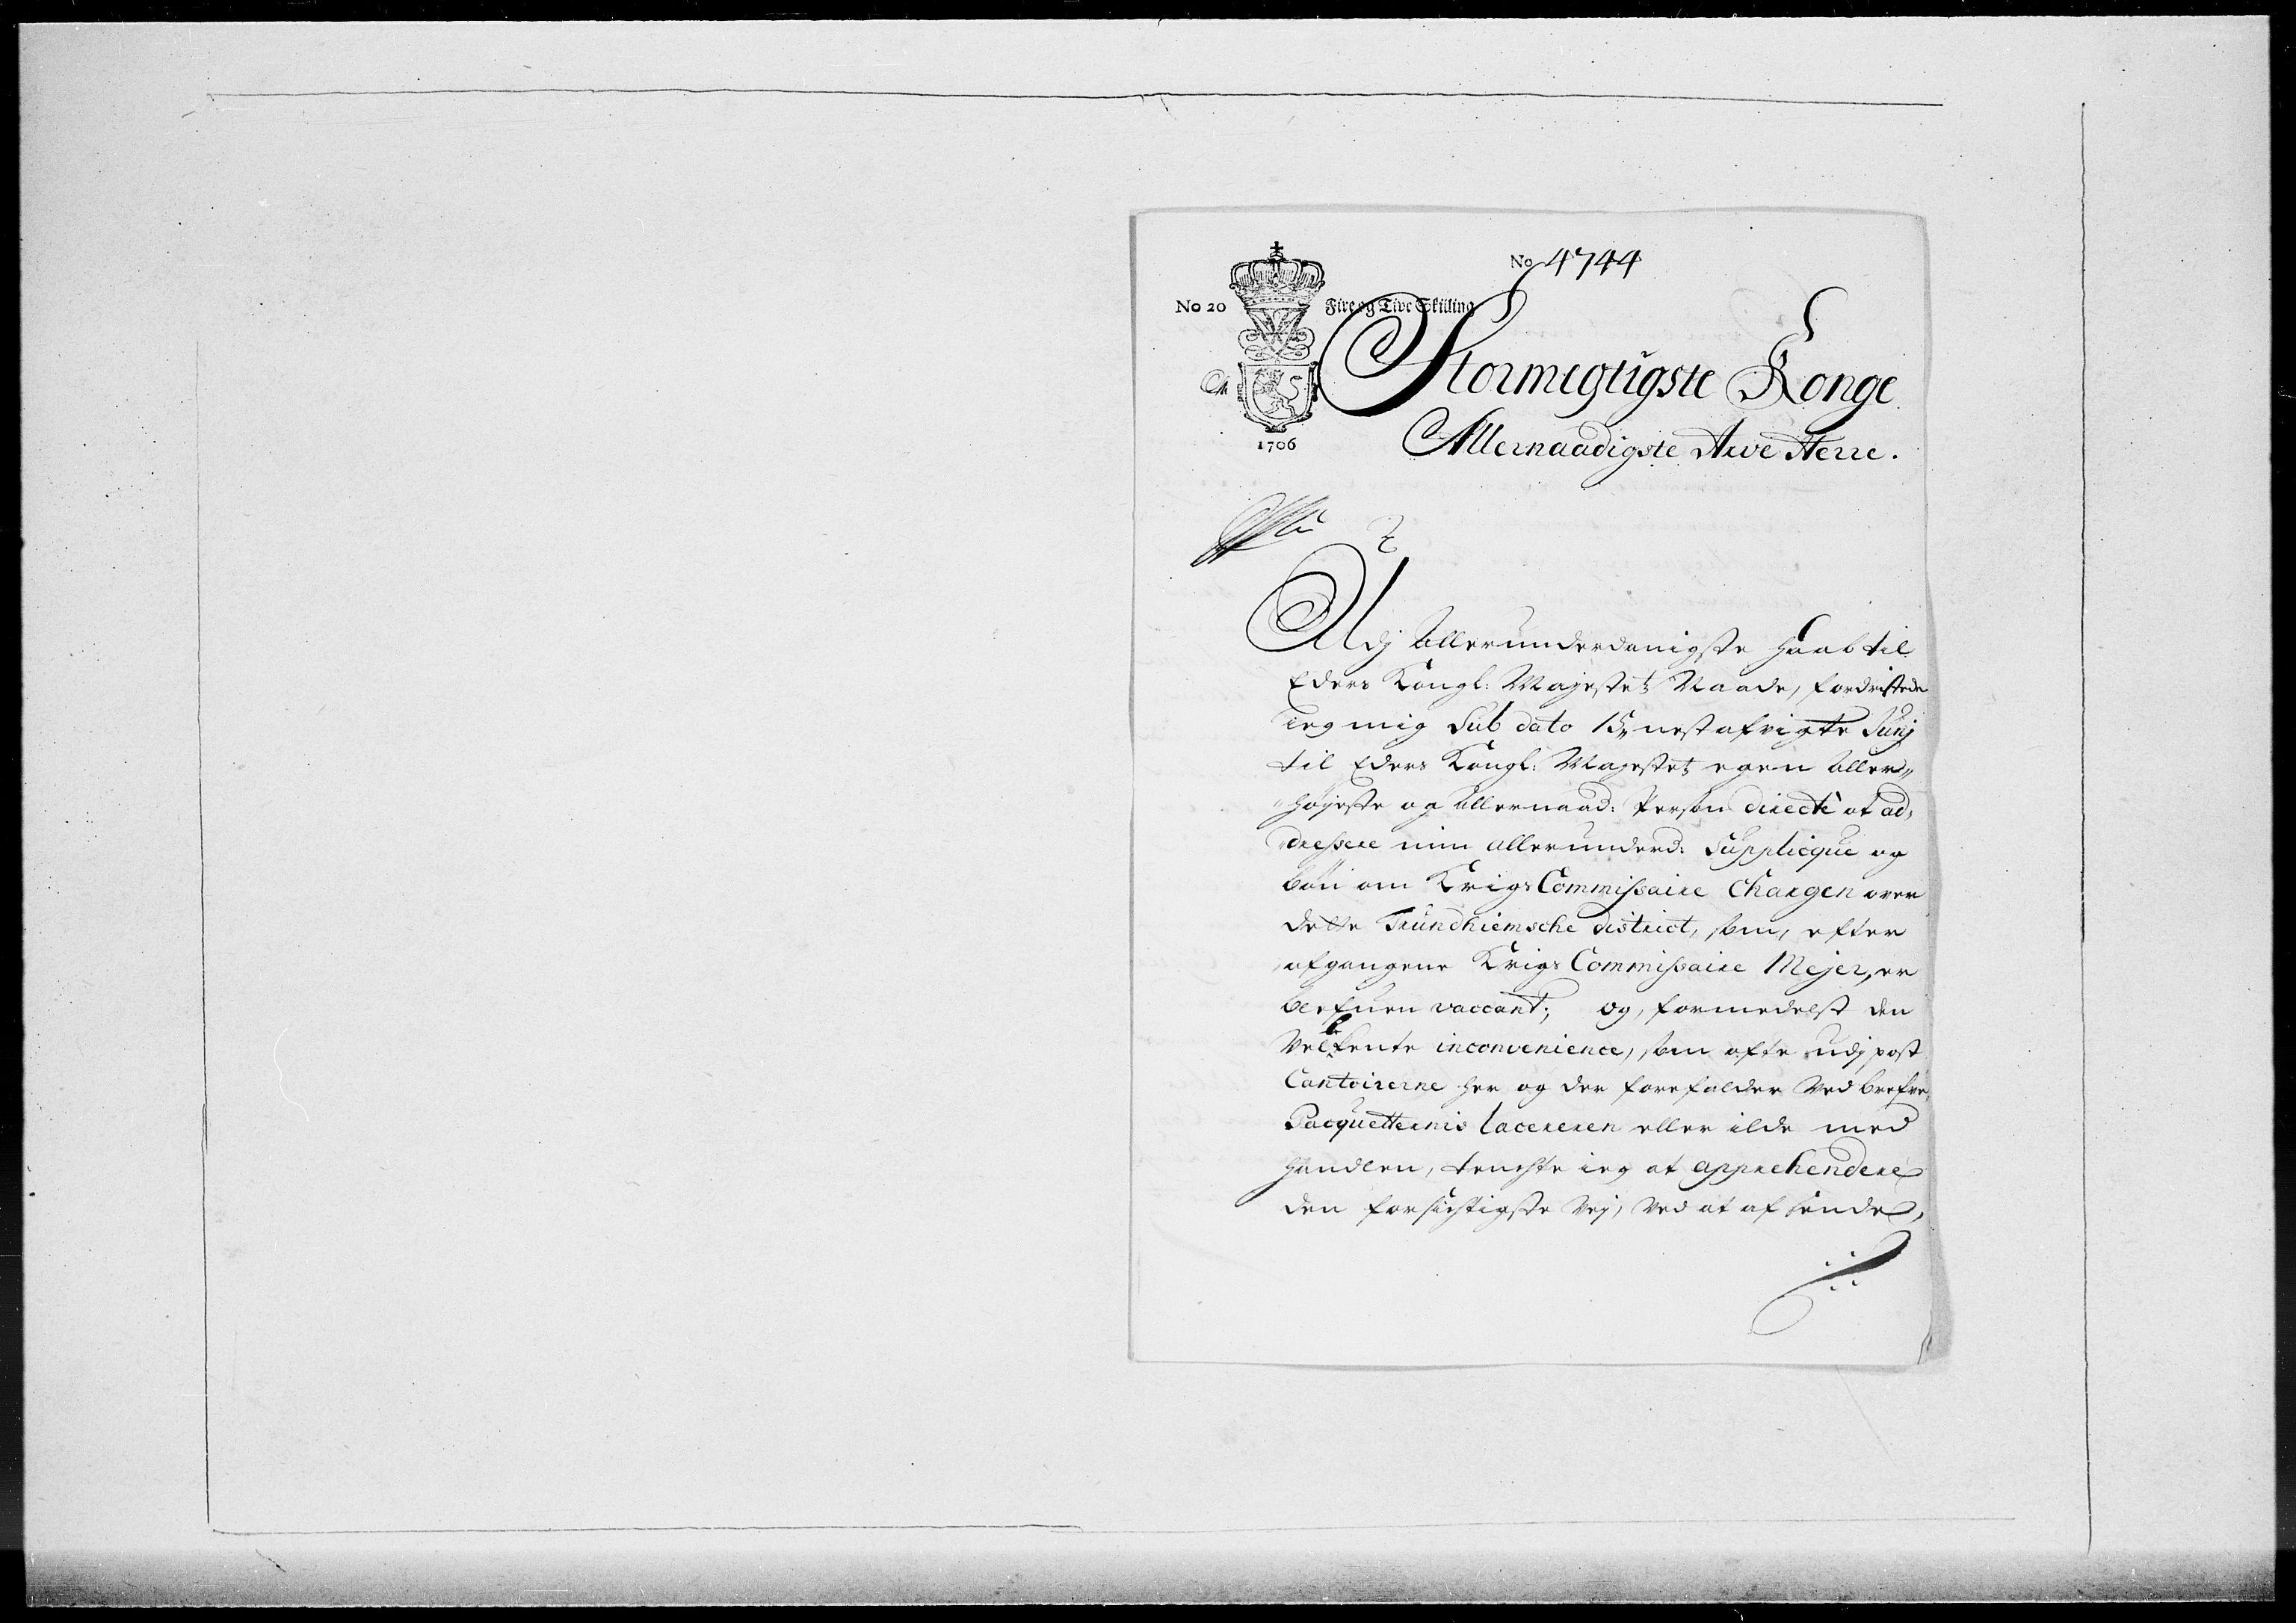 No 4744
No 20 Fire og Tive Skilling
Stormegtigste Konge
1706
Allernaadigste Arve Herre.
Udj Allerunderdanigste haab til
Eders Kongl: Majestets Naade, fordristede
ieg mig Sub dato 15 nest afvigte Junj
til Eders Kongl: Majestets egen Aller„
„høyeste og Allernaad: Person directè at ad,
„dressere min allerunderd: Supplicque og
bön om Krigs Commissaire Chargen over
dette Trundhiemsche district, som, efter
afgangene Krigs Commissaire Mejer, er
blefuen vaccant; og, formedelst den
Velkente inconvenience, som ofte udj post
Cantoirerne her og der forefalder ved brefve„
Pacquetternis lacereren eller ilde med
handlen, tenchte ieg at apprehendere
den forsichtigste Vej, ved at afsende,